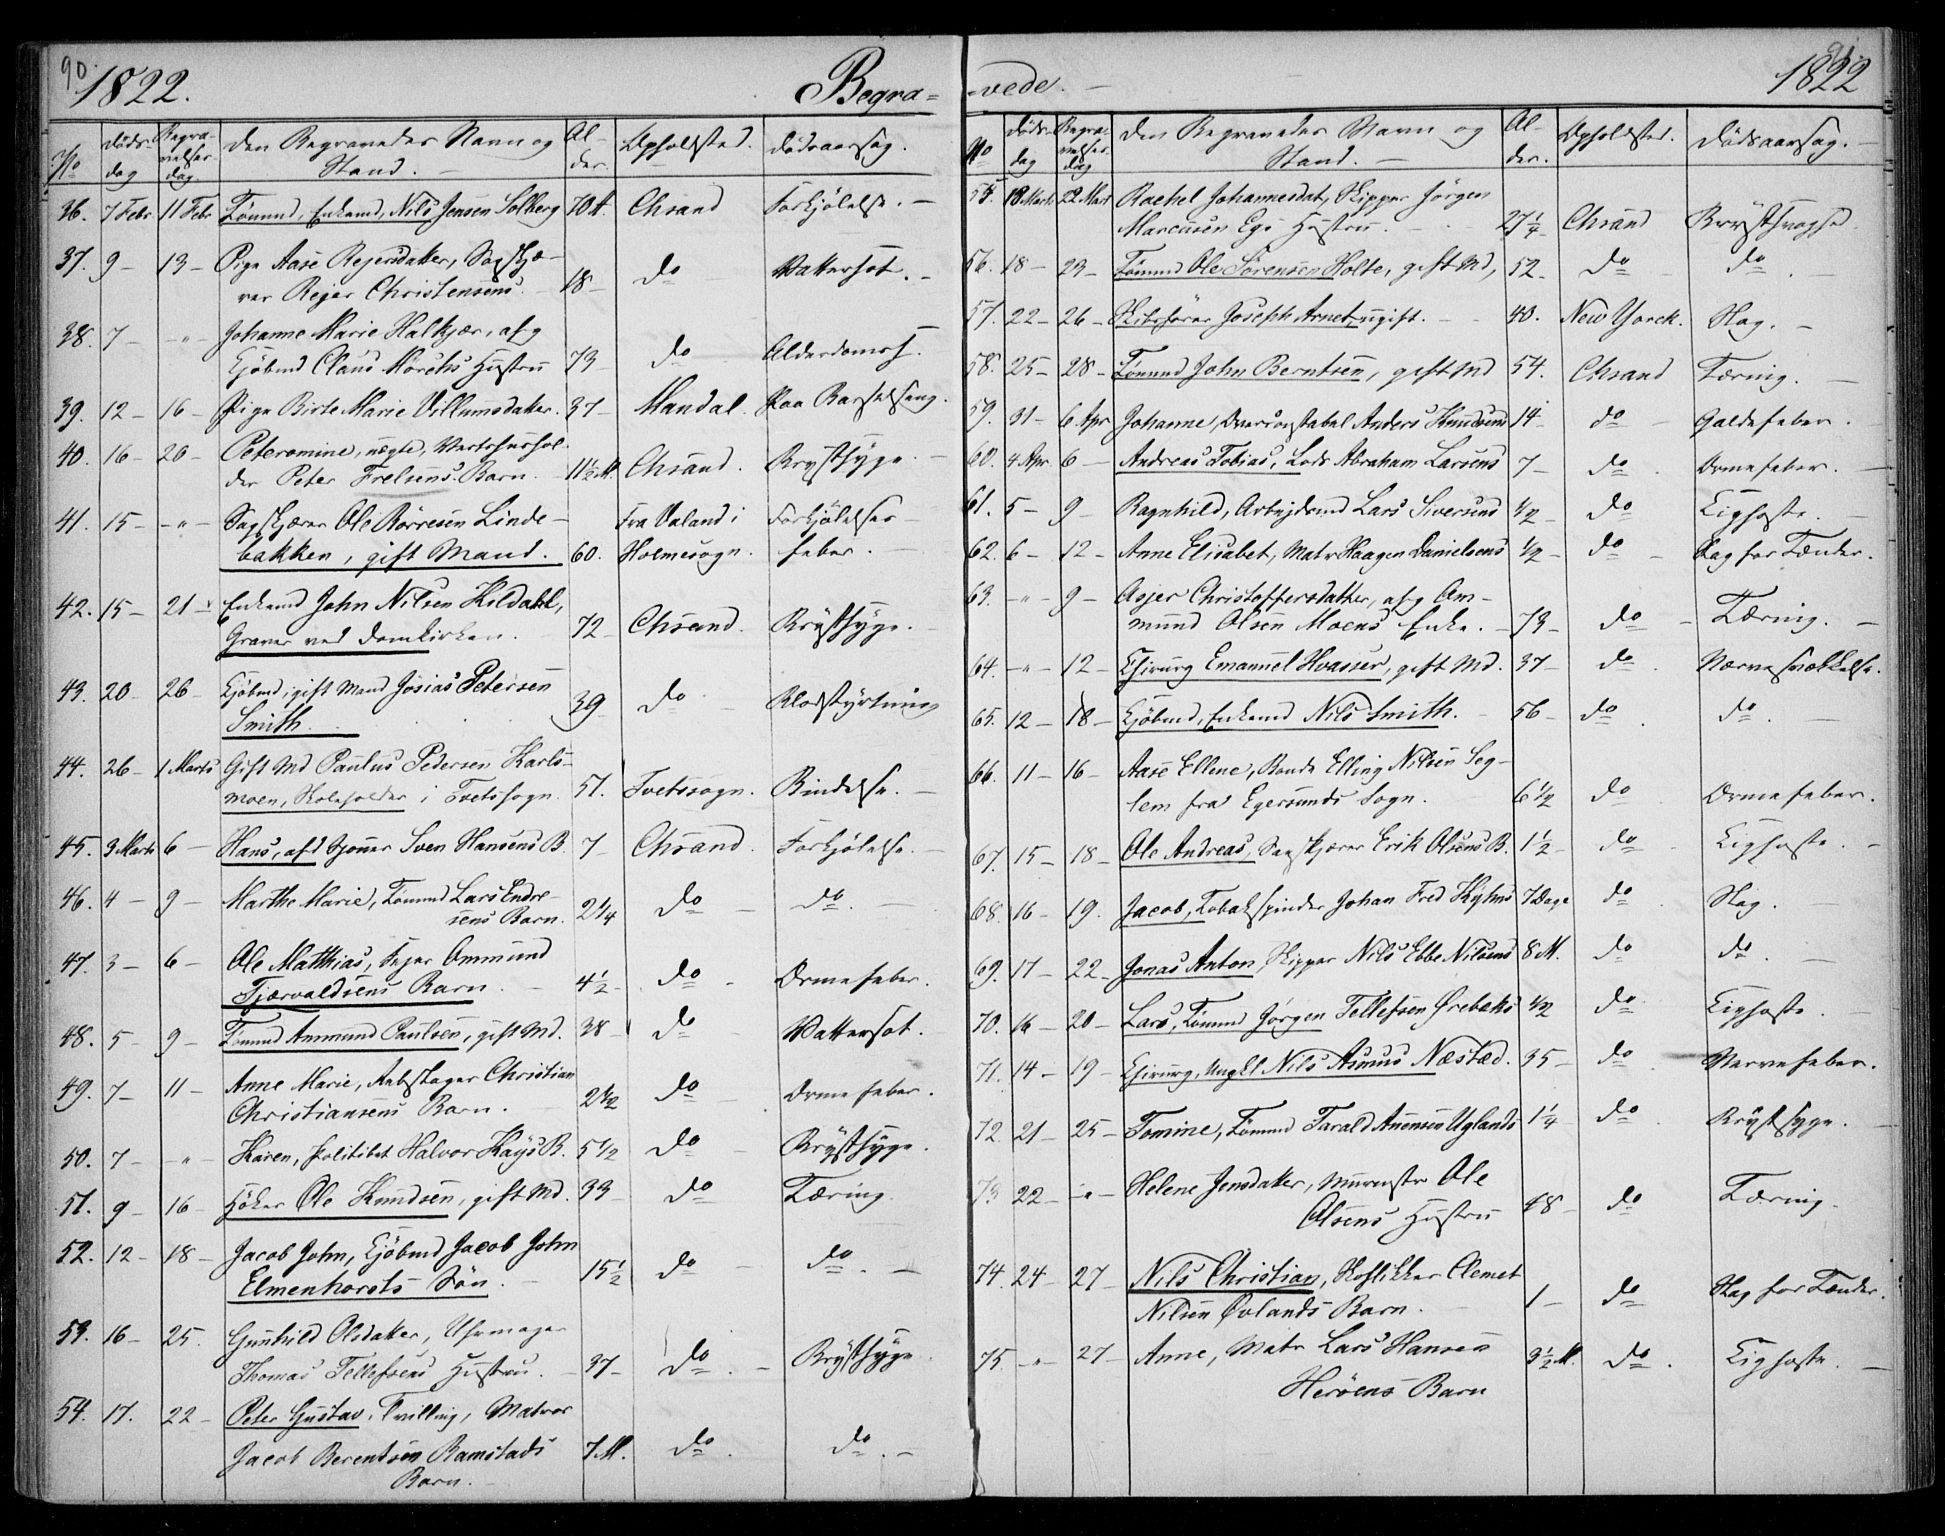 90.
1822.
Begra=
No Døds- dag Begra- velses dag. Den Begravedes Navn og Stand. Al- der. Opholdsted. Dødsaarsag.
36. 7 Febr 11 Febr Tømmd, Enkemd, Nils Jensen Solberg 70 A. Chrsand Forkjølelse. –
37. 9 – 13 – Pige Aase Rejersdatter, Sagskjæ-
rer Rejer Christensens. 18 – do Vattersot. –
38. 7 – – " – Johanne Marie Halkjær, afg
Kjøbmd Claus Morchs Hustru 73 – do Alderdomss.
39. 12 – 16 – Pige Birte Marie Villumsdatter. 37 – Mandal. Paa Barselseng.
40. 16 – 20 – Peteromine, uægte, Vertshushol-
der Peter Frelsens Barn. – 11½ M. Chrsand. Brystsyge. –
41. 15 – – " – Sagskjærer Ole Børresen Linde- Fra Valand i Forkjølelses –
bakken, gift Mand. 60. Holmesogn. feber. –
42. 15 – 21 – Enkemd John Nilsen Kildahl,
Graver ved Domkirken. 72 – Chrsand. Brystsyge.
43. 20 – 26 – Kjøbmd, gift Mand Josias Petersen
Smith. 39 – do Blodstyrtning
44. 26 – 1 Marts Gift Md Paulus Pedersen Karls-
moen, Skoleholder i Tvetsogn. 51. Tvetsogn. Bindelse. –
45. 3 Marts 6 – Hans, afd Spouer Sven Hansens B. 7 – Chrsand. Forkjølelse. –
46. 4 – 9 – Marthe Marie, Tømmd Lars Endre-
sens Barn. 2¼ do – do. –
47. 3 – 6 – Ole Matthias, Fejer Ommund
Tjærvaldsens Barn. – 4½ – do – Ormefeber.
48. 5 – 9 – Tømmd Ammund Paulsen, gift Md. 38 – do – Vattersot.
49. 7 – 11 – Anne Marie, Rebslager Christian
Christiansens Barn. – 2½ do – Ormefeber.
50. 7 – – " – Karen, Politibet Halvor Kays B. 5½ do – Brystsyge.
51. 9 – 16 – Høker Ole Knudsen, gift Md. 33 – do Tæring.
52. 12 – 18 – Jacob John, Kjøbmd Jacob John
Elmenhorsts Søn. – 15½ do – do. –
53. 16 – 25. Gunhild Olsdatter, Uhrmager
Thomas Tellefsens Hustru. – 37 – do. – Brystsyge.
54. 17. 22 – Peter Gustav, Tvilling, Matros
Jacob Berentsen Ramstads 7 M. do. do. –
Barn. –
vede. –
1822
No Døds- dag Begra- velses- dag Den Begravedes Navn og Stand. – Al- der. Opholdsted. Dødsaarsag. –
55. 18 Marts 22 Marts Rachel Johannesdat, Skipper Jørgen
Marcussen Ege Hustru. – 27¼ Chrsand Brystsvaghed.
56. 18 – 23 – Tømmd Ole Sørensen Holte, gift Md, 52 – do do.
57. 22 – 26 – Skibsfører Joseph Arnet, ugift. – 40. New Yorck. Slag. –
58. 25 – 28 – Tømmd John Berntsen, gift Md 54. Chrsand Tæring. –
59. 31 – 6 Apr Johanne, Overconstabel Anders Knudsens 14 – do – Galdefeber.
60. 4 Apr 6 – Andreas Tobias, Lods Abraham Larsens 7 – do. Ormefeber. –
61. 5 – 9 – Ragnhild, Arbejdsmd Lars Siversens ½ – do – Kighoste.
62. 6 – 12 – Anne Elisabet, Matr Haagen Danielsens ½ – do – Slag for Tænder.
63. – " – 9 – Asjer Christoffersdatter, afg Om-
mund Olsen Moens Enke. – 73 – do – Tæring. –
64. – " – 12 – Chirurg Emanuel Hvasser, gift Md. 37 – do. Nervesvækkelse.
65. 12 – 18 – Kjøbmd, Enkemd Nils Smith. – 56 – do. do.
66. 11 – 16 – Aase Ellene, Bonde Elling Nilsen Seg-
lem fra Egersunds Sogn. 6½ do Ormefeber.
67. 15 – 18 – Ole Andreas, Sagskjærer Erik Olsens B. 1½ – do – Kighoste. –
68. 16 – 19. Jacob, Tobakspinder Johan Fred Kyhns 7 Dage do. Slag.
69. 17 – 22 – Jonas Anton, Skipper Nils Ebbe Nilsens 8 M. do do. –
70. 16 – 20 – Lars, Tømmd Jørgen Tellefsen Ørebeks ½ do. Kighoste. –
71. 14 – 19 – Chirurg, Ungkl Nils Asmus Næstæd. 35 – do Nervefeber.
72. 21 – 25 – Tomine, Tømmd Tarald Anensen Uglands 1¼ do. Brystsyge. –
73. 22 – – " – Helene Jensdatter, Murmstr Ole
Olsens Hustru 48 – do Tæring.
74. 24 – 27 – Nils Christian, Skoflikker Clemet
Nilsen Øvlands Barn. – 1 – do Slag for Tænder.
75. – " – 27 – Anne, Matr Lars Hansen 3½ M. do. Kighoste. –
Herøens Barn